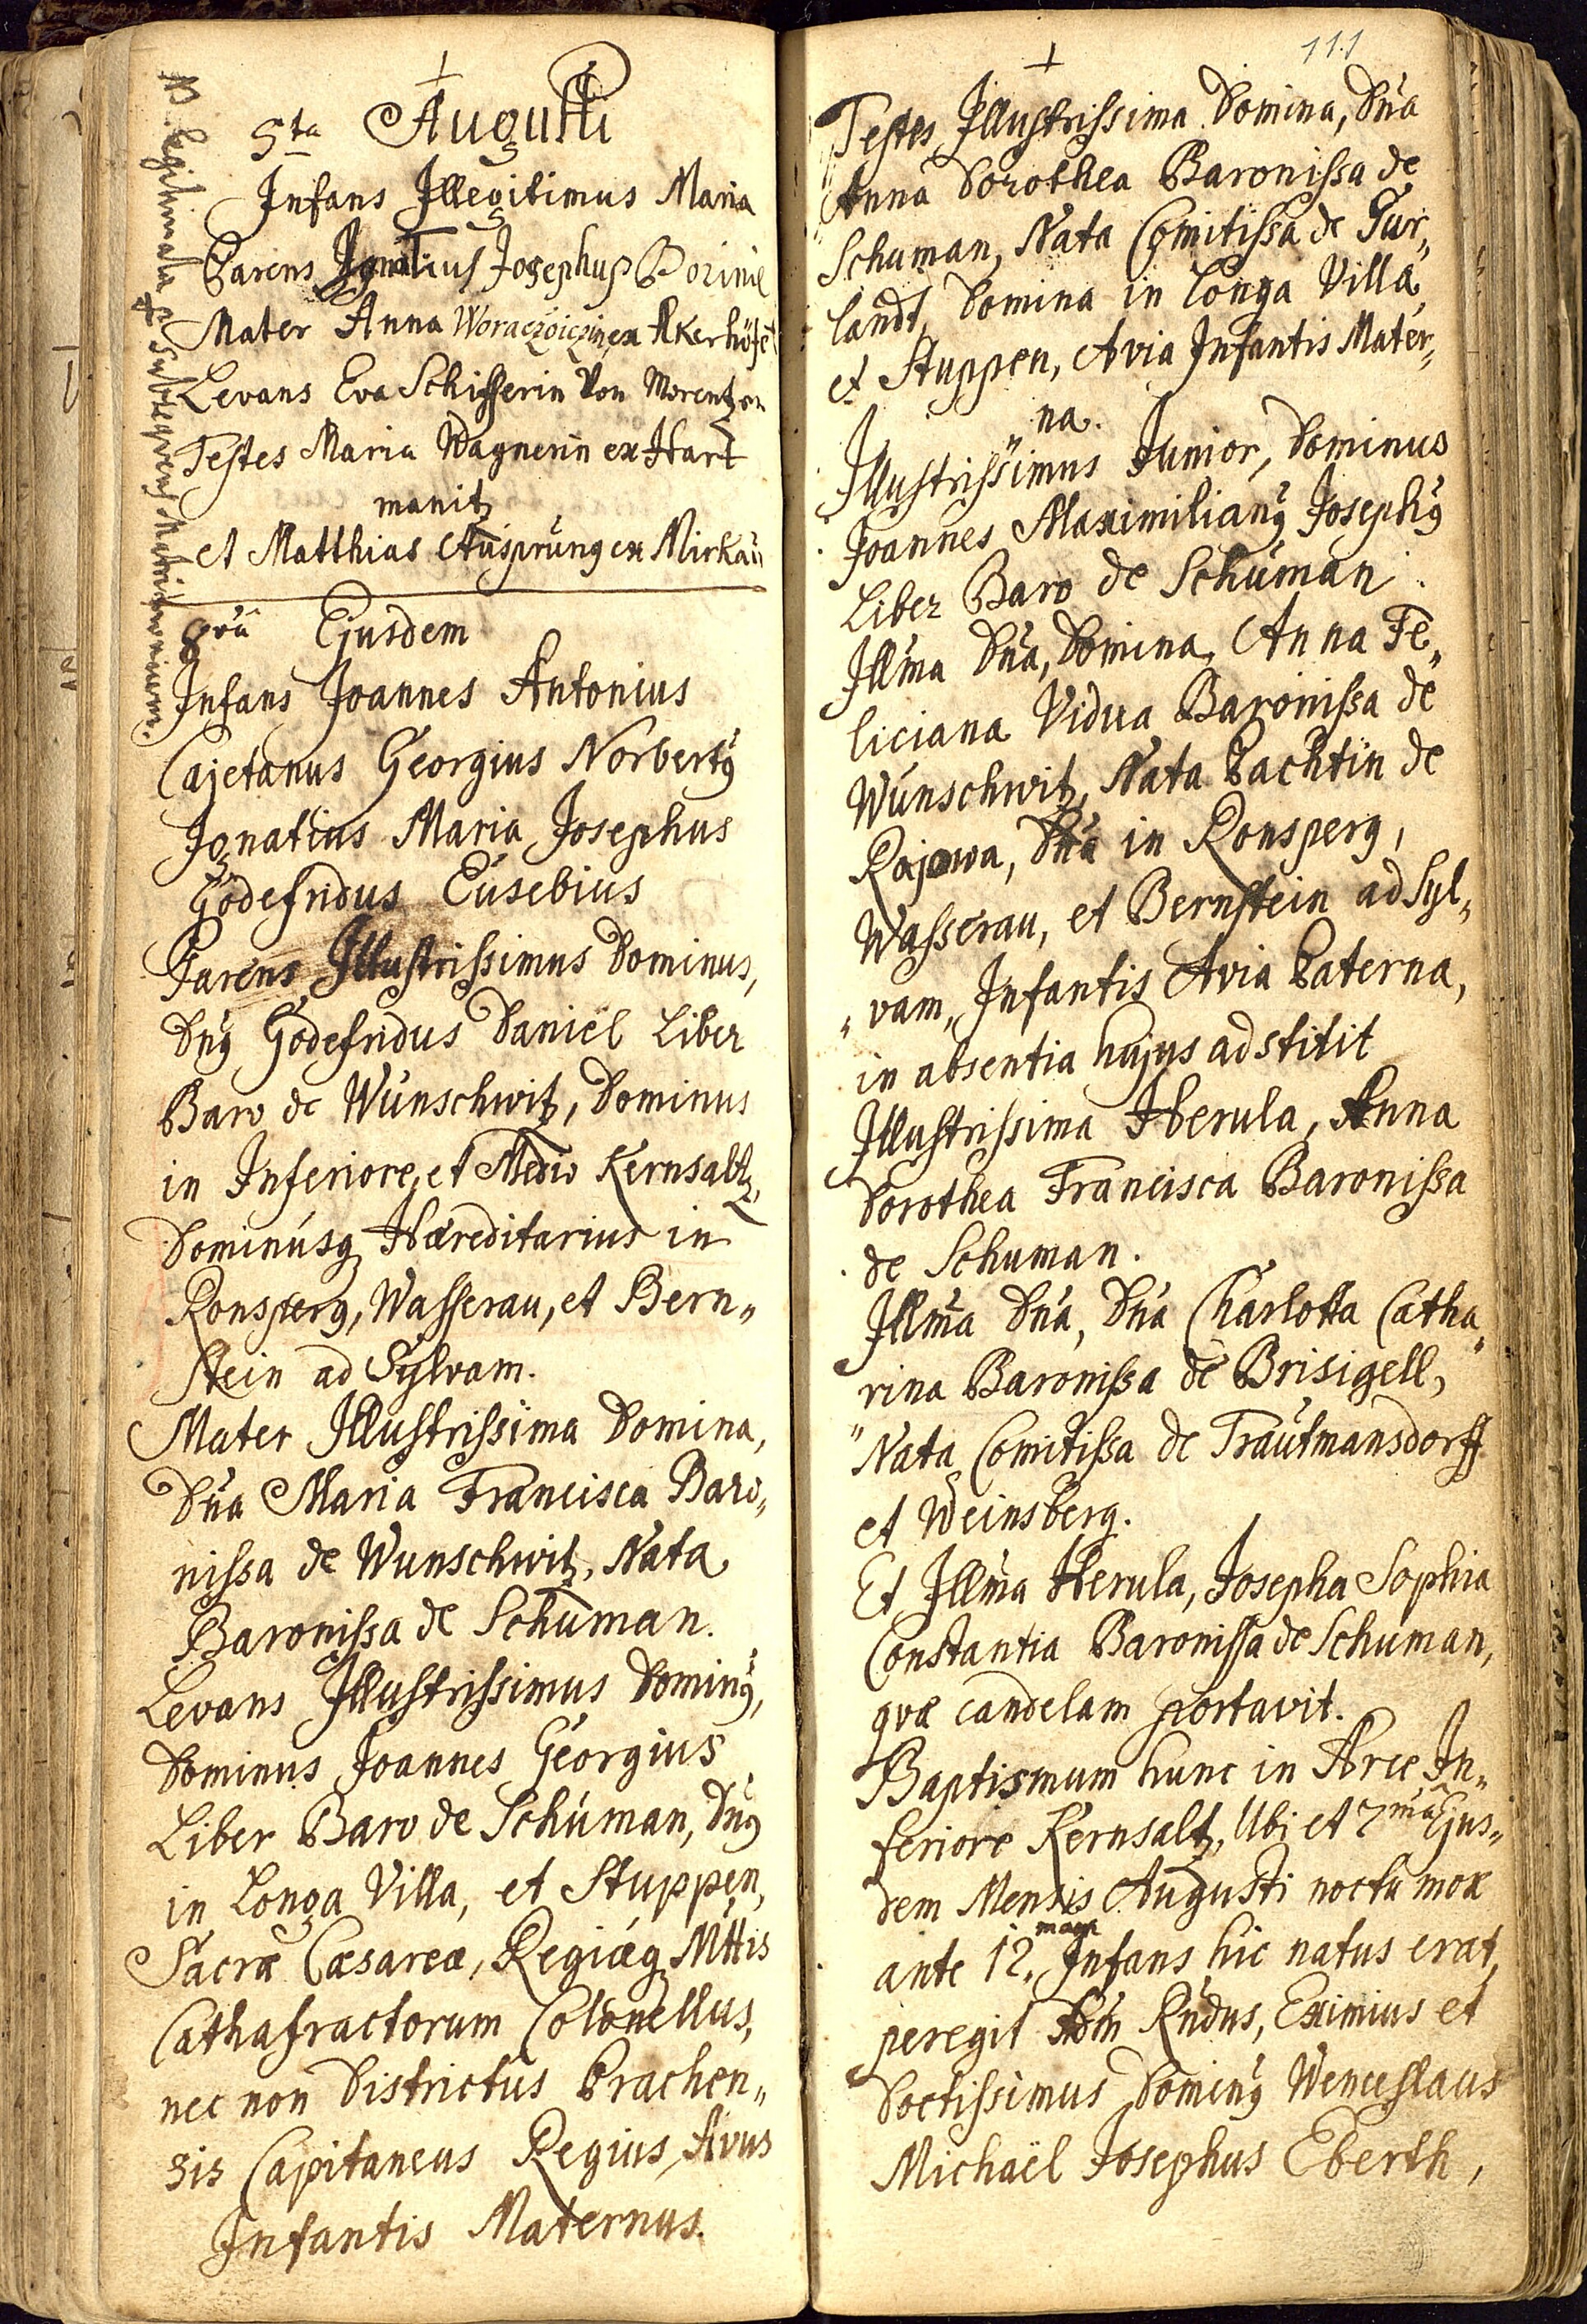 Augusti
5ta
Infans Illegitimus Maria
Parens Ignatius Josephus
Mater Anna ex
Levans Eva Schifferin Von Morentzen
Testes Maria Wagnerin ex Hart
manitz
et Matthias Aússprúng ex Mirkaú
legitimata subsequens Matrimonium.
Ejusdem
Infans Joannes Antonius
Cajetanus Georgius Norbertꝰ
Ignatius Maria Josephus
Godefridus Eúsebius
Parens Illustrissimus Dominus,
Dn̄ꝰ Godefridus Daniël Liber
Baro de Wúnschwitz, Dominus
in Inferiore, et Medio Kernsaltz,
Dominúsq Hæreditarius in
Ronsperg, Wasserau, et Bern„
stein ad Sylvam.
Mater Illustrissima Domina,
Dn̄a Maria Francisca Baro„
nissa de Wunschwitz, Nata
Baronissa de Schúman.
Levans Illustrissimus Dominꝰ,
Dominus Joannes Georgius
Liber Baro de Schúman, Dn̄ꝰ
in Longa Villa, et Stuppen,
Sacræ Cæsareæ, Regiæq Mttis
Cathafractorum Colonellus,
nec non Districtus Prachen„
sis Capitaneus Regius, Avus
Infantis Maternus.
111
Testes Illustrissima Domina, Dn̄a
Anna Dorothea Baronissa de
Schuman, Nata Comitissa de Gur„
landt, Domina in Longa Villa,
et Stuppen, Avia Infantis Mater„
„na.
Illustrissimus Junior, Dominus
Joannes Maximilianꝰ Josephꝰ
Liber Baro de Schúman.
Illm̄a Dn̄a, Domina, Anna Fe„
liciana Vidua Baronissa de
Wúnschwitz, Nata Pachtin de
Rajowa, Dn̄a in Ronsperg,
Wasserau, et Bernstein ad Syl„
„vam, Infantis Avia Paterna,
in absentia hujus adstitit
Illustrissima Herula, Anna
Dorothea Francisca Baronissa
de Schuman.
Illm̄a Dn̄a, Dn̄a Charlotta Catha„
rina Baronissa de Brisigell,
„Nata Comitissa de Traútmansdorff
et Weinsberg.
Et Illm̄a Herula, Josepha Sophia
Constantia Baronissa de Schuman,
qvæ candelam portavit.
Baptismum hunc in Arce In„
feriore Kernsaltz, Ubi et 7ma Ejus„
dem Mensis Augusti noctu mox
ante 12.mam Infans hic natus erat,
peregit Rn̄dus, Eximius et
Doctissimus Dominꝰ Wenceslaus
Michaël Josephus Eberth,